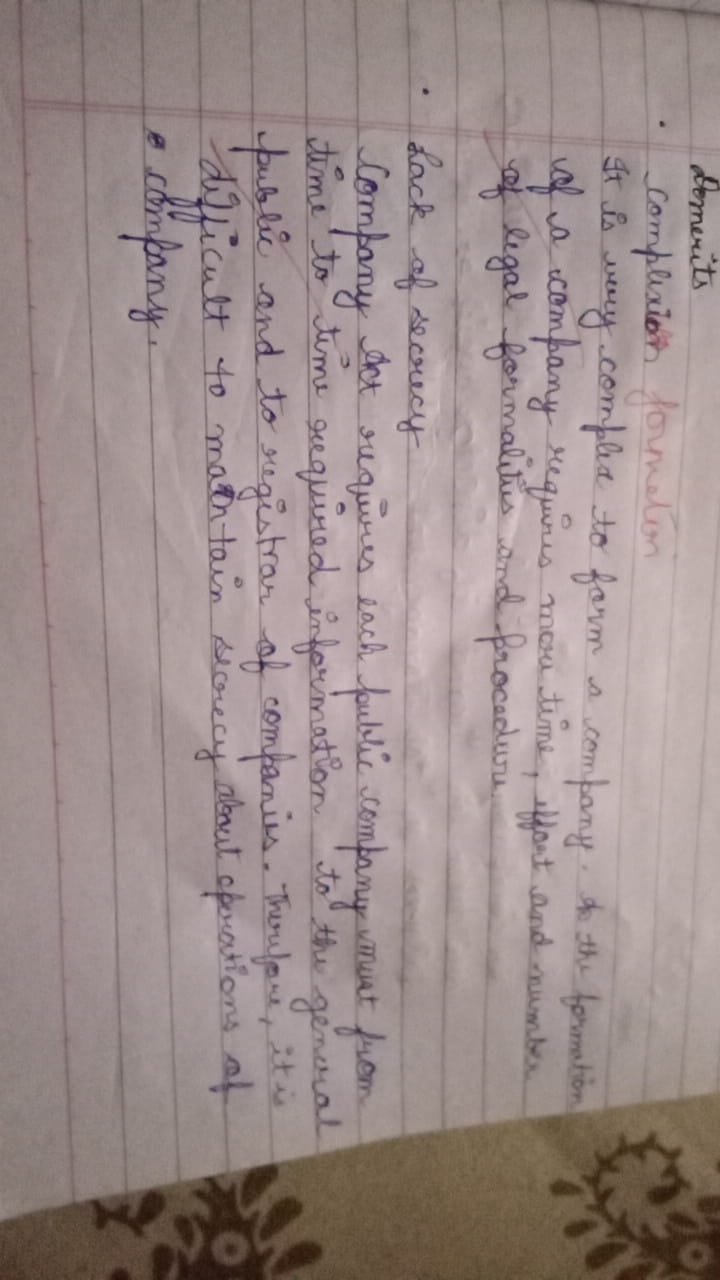 Demerits
• Complexion formation
It is very complex to form a company. As the formation
of a company requires more time, effort and number
of legal formalities and procedure.
• Lack of secrecy
Company Act requires each public company must from
time to time required information to the general
public and to registrar of companies. Therefore, it is
difficult to maintain secrecy about operations of
company.